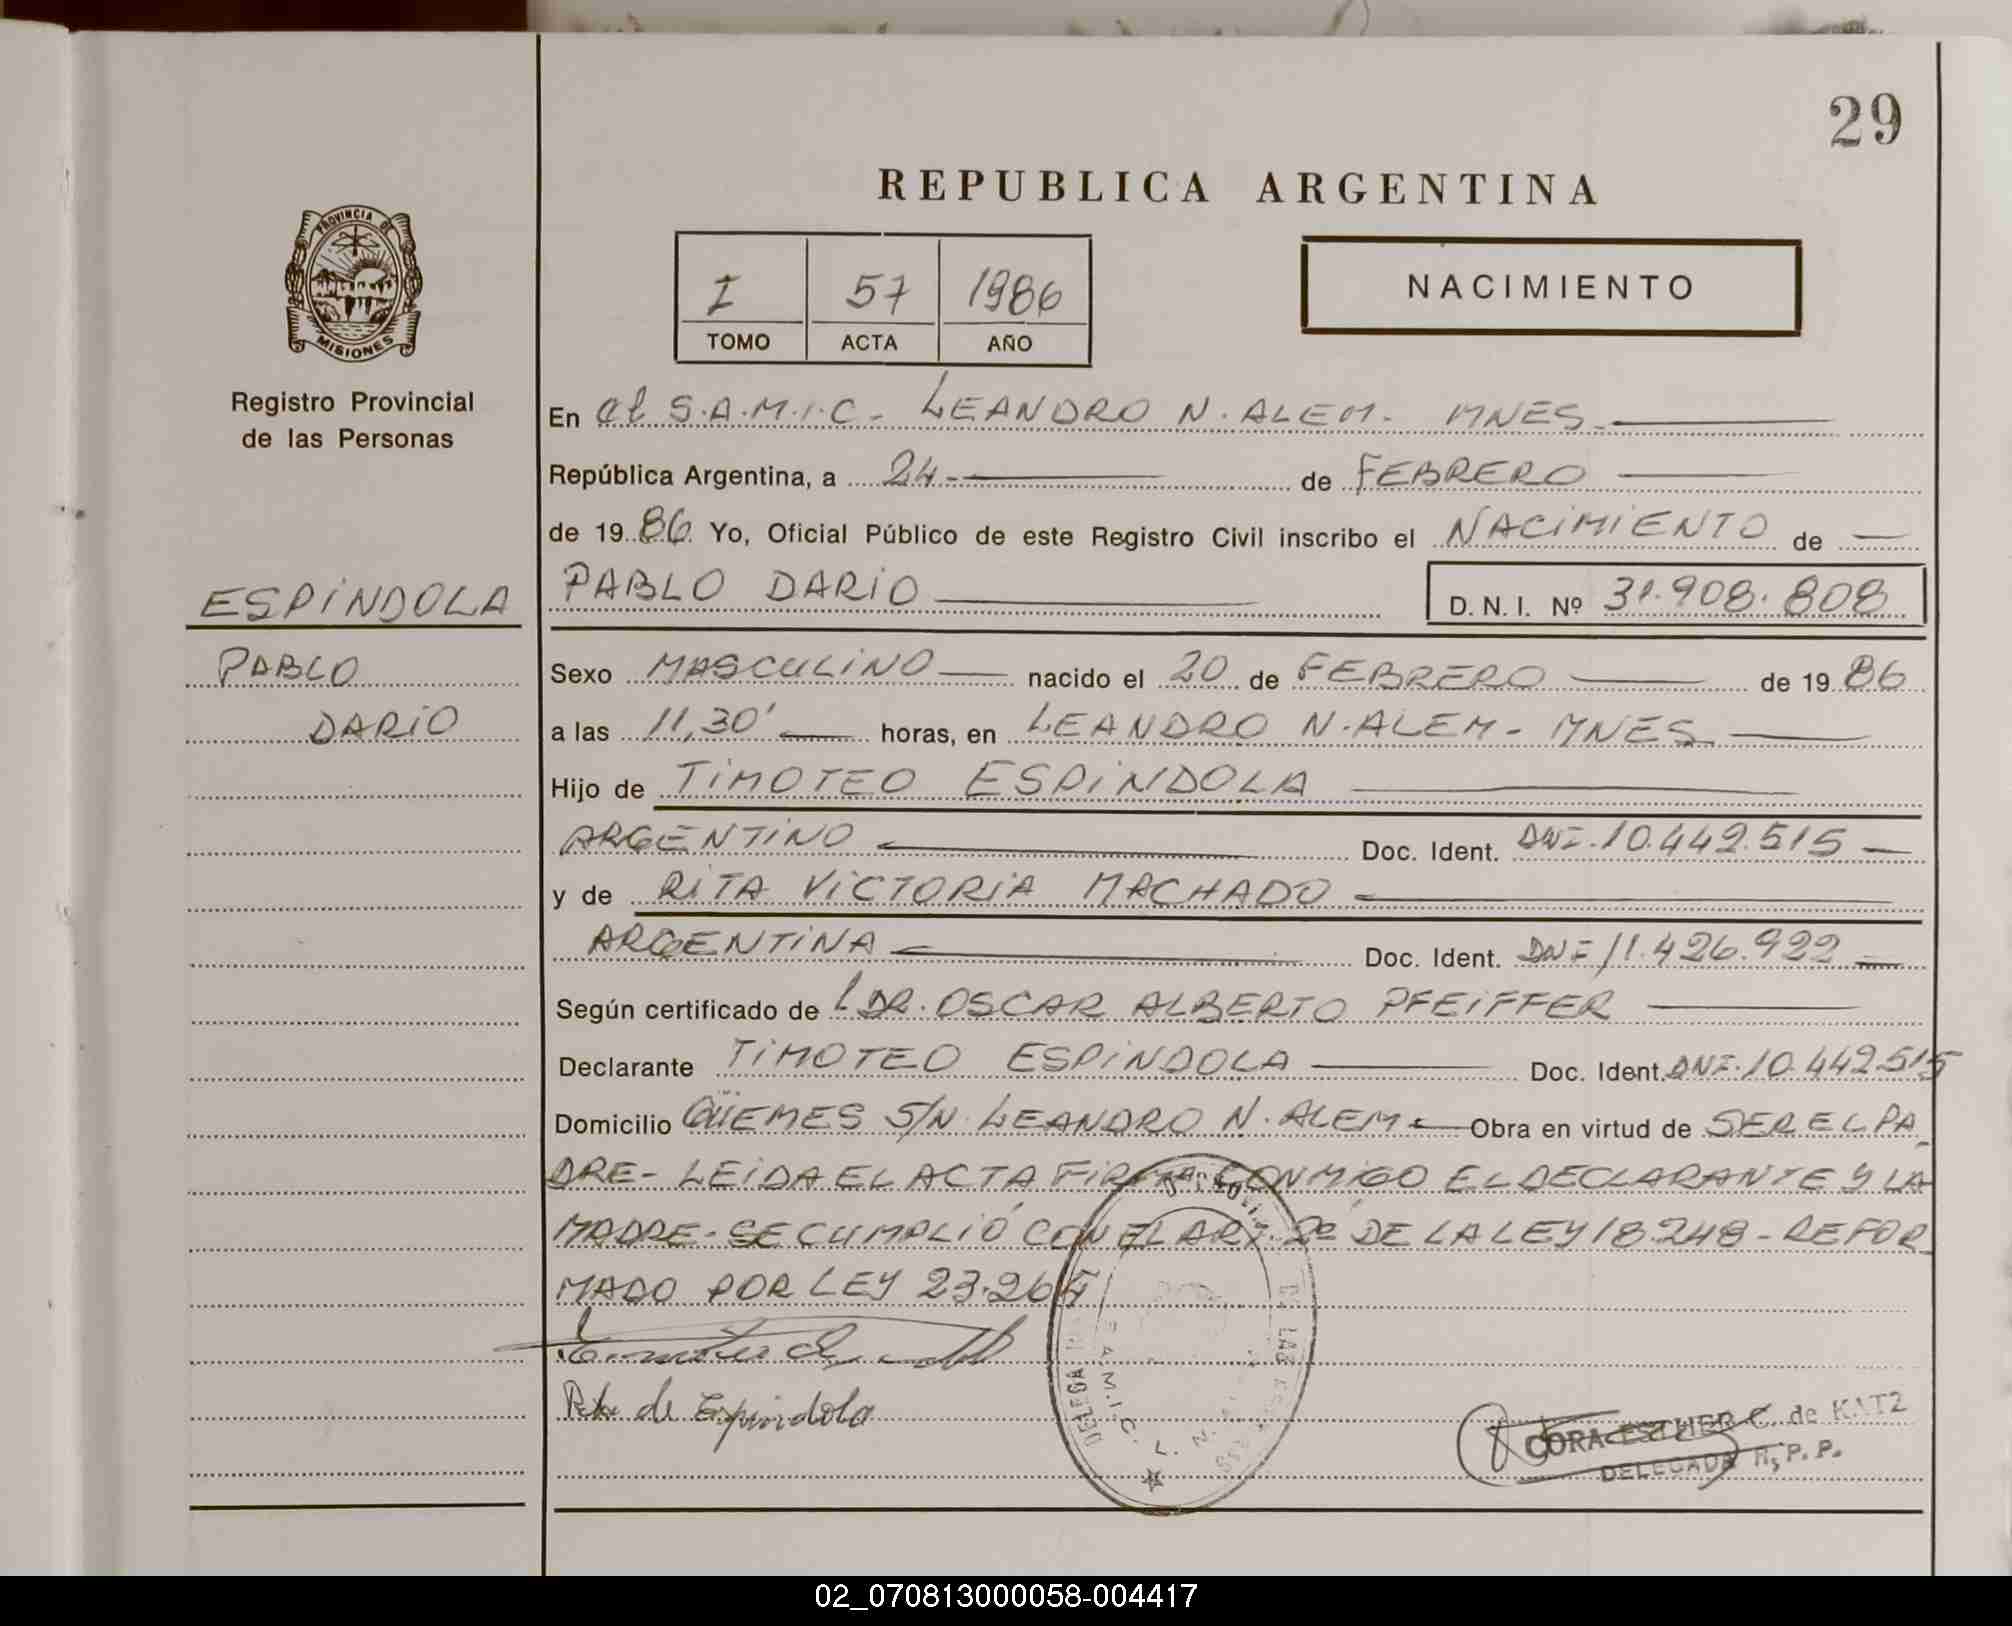 29
REPUBLICA ARGENTINA
PROVINCIA DE
MISIONES
Registro Provincial
de las Personas
I 57 1986
TOMO ACTA AÑO
NACIMIENTO
En el S.A.M.I.C- LEANDRO N. ALEM- MNES-
República Argentina, a 24- de FEBRERO
de 1986 Yo, Oficial Público de este Registro Civil inscribo el NACIMIENTO de
ESPINDOLA
PABLO DARIO
D.N.I. Nº 31.908.808
PABLO
DARIO
Sexo MASCULINO nacido el 20 de FEBRERO de 1986
a las 11,30' horas, en LEANDRO N. ALEM- MNES
Hijo de TIMOTEO ESPINDOLA
ARGENTINO Doc. Ident. DNI-10.442.515
y de RITA VICTORIA MACHADO
ARGENTINA Doc. Ident. DNI 11.426.922
Según certificado de DR. OSCAR ALBERTO PFEIFFER
Declarante TIMOTEO ESPINDOLA Doc. Ident. DNI-10.442.515
Domicilio GÜEMES S/N. LEANDRO N. ALEM- Obra en virtud de SER EL PA
DRE- LEIDA EL ACTA FIRMA CONMIGO EL DECLARANTE Y LA
MADRE- SE CUMPLIÓ CON EL ART. 2º DE LA LEY 18.248- REFOR
MADO POR LEY 23.264
Rita de Espindola
DELEGA
DE LAS
S.A.M.I.C. L. N. A
CORA ESTHER C. de KATZ
DELEGADA R.P.P.
02_070813000058-004417